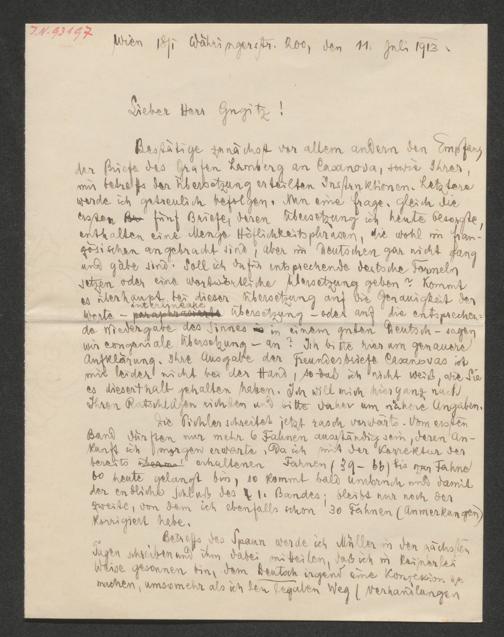 J.N. 93197
Wien 18/1 Währingerstr. 200, den 11. Juli 1913.
Lieber Herr Gugitz!
Bestätige zunächst vor allem andern den Empfang
der Briefe des Grafen Lamberg an Casanova, sowie Ihrer,
mir betreffs der Übersetzung erteilten Instruktionen. Letztere
werde ich getreulich befolgen. Nun eine Frage. Gleich die
ersten fünf Briefe, deren Übersetzung ich heute besorgte,
enthalten eine Menge Höflichkeitsphrasen, die wohl im fran-
zösischen angebracht sind, aber im Deutschen gar nicht gang
und gäbe sind. Soll ich dafür entsprechende deutsche Formeln
setzen oder eine wortwörtliche Übersetzung geben? Kommt
es überhaupt bei dieser Übersetzung auf die Genauigkeit der
Worte – interlineare Übersetzung – oder auf die entsprechen-
de Wiedergabe des Sinnes in einem guten Deutsch – sagen
wir congeniale Übersetzung – an? Ich bitte hierum genauere
Aufklärung. Ihre Ausgabe der Freundesbriefe Casanovas ist
mir leider nicht bei der Hand, so daß ich nicht weiß, wie Sie
es dieserthalb gehalten haben. Ich will mich hier ganz nach
Ihren Ratschlägen richten und bitte daher um nähere Angaben.
Die Pichler schreitet jetzt rasch vorwärts. Vom ersten
Band dürften nur mehr 6 Fahnen ausständig sein, deren An-
kunft ich morgen erwarte. Da ich mit der Korrektur der
bereits erhaltenen Fahnen (39–66) bis zur Fahne
60 heute gelangt bin, so kommt bald Umbruch und damit
der endliche Schluß des 1. Bandes; bleibt nur noch der
zweite, von dem ich ebenfalls schon 30 Fahnen (Anmerkungen)
korrigiert habe.
Betreffs des Spaun werde ich Müller in den nächsten
Tagen schreiben und ihm dabei mitteilen, daß ich in keinerlei
Weise gesonnen bin, dem Deutsch irgend eine Konzession zu
machen, umsomehr als ich den legalen Weg (Verhandlungen